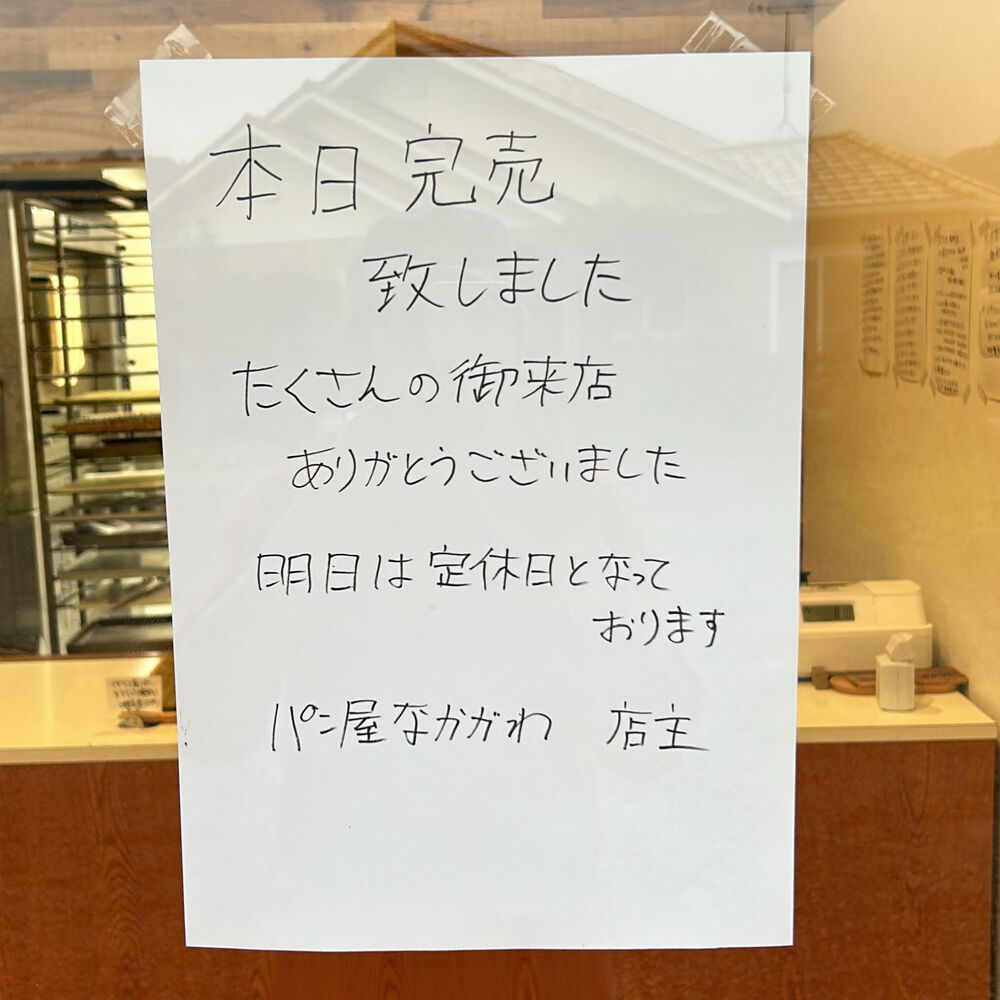 本日完売
致しました
たくさんの御来店
ありがとうございました
明日は定休日となって
おります
パン屋なかがわ 店主